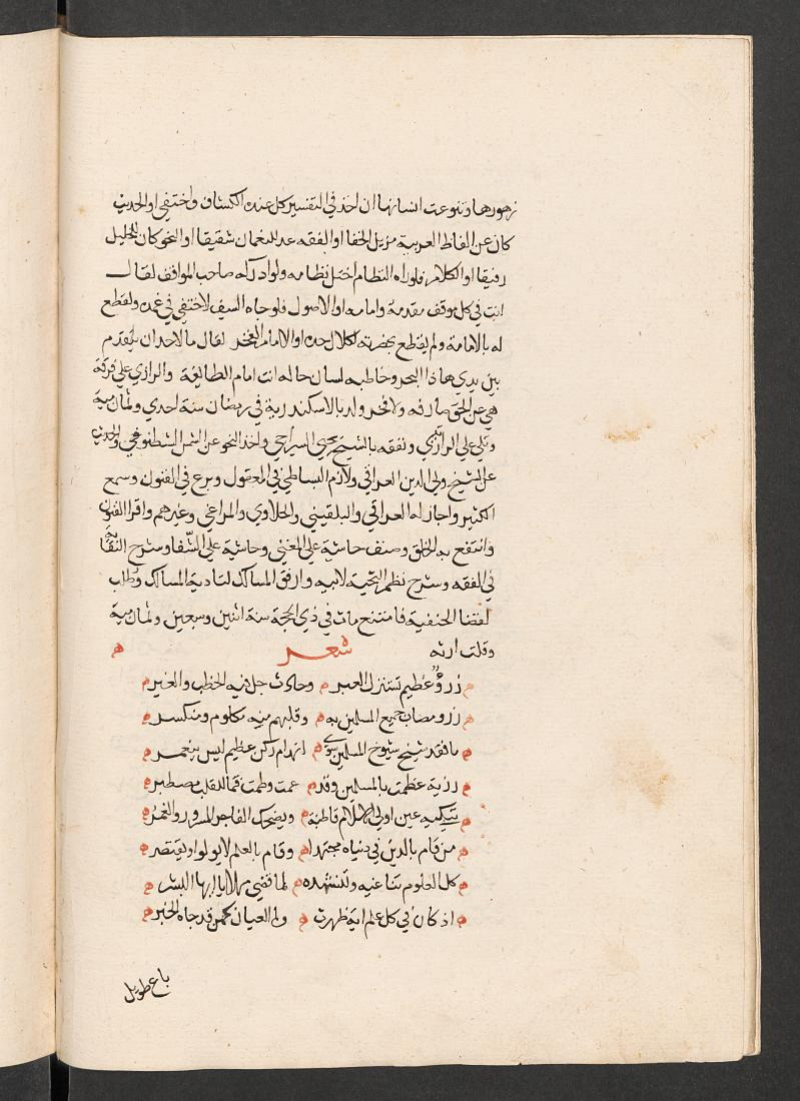 زهورها وتنوعت انسانها ان اخذ في التفسير كل عنده الكشاف واختفي او الحديث
كان عن الفاظ الغريبة مزيل الخفا او الفقه عد للنعمان شقيقا او النحو كان للخليل
رفيقا او الكلام فلوراه النظام اختل نظامه ولو ادركه صاحب المواقف لقال
انت في كل موقف مقدمه وامامه او الاصول فلو جاه السيف لاختفي في غمده ولقطع
له بالامامة ولم يقطع بحضرته لكلال حده او الامام الفخر لقال مالاحد ان يتقدم
بين يدي هاذا البحر وخاطبه لسان حاله انت امام الطائفة والرازي علي فرقة
هي عن الحق صارفه ولا فخر ولد بالاسكندرية في رمضان سنة احدي وثمان مية
وتلي علي الزراتيتي وتفقه بالشيخ يحيي السيرامي واخذ النحو عن الشمس الشطنوفي والحديث
عن الشيخ ولي الدين العراقي ولازم البساطي في المعقول وبرع في الفنون وسمع
الكثير واجاز له العراقي والبلقيني والحلاوي والمراغي وغيرهم واقرا الفنون
وانتفع به الخلق وصنف حاشية علي المغني وحاشية علي الشفا وشرح النقاية
في الفقه وشرح نظم النخبة لابيه وارفق المسالك لتادية المسالك وطلب
لقضا الحنفية فامتنع مات في ذي الحجة سنة اثنين وسبعين وثمان مية
وقلت ارثه شعر
رزؤ عظيم تستنزل العبر وحادث جل فيه الخطب والغير
رزو مصاب جميع المسلمين به وقلبهم منه مكلوم ومنكسر
مافقد شيخ شيوخ المسلمين سوي انهدام ركن عظيم ليس ينعمر
رزية عظمت بالمسلمين وقد عمت وطمت فما للقلب مصطبر
تبكيه عين اولي الاسلام قاطبة ويضحك الفاجر المسرور والغمر
من قام بالدين في دنياه مجتهدا وقام بالعلم لا يولوا ويقتصر
كل العلوم تناعيه وتنشده لما قضي مهلا يا ايها البشر
اذ كان في كل علم اية ظهرت ولم العيان كمن قد جاه الخبر
باع طويل